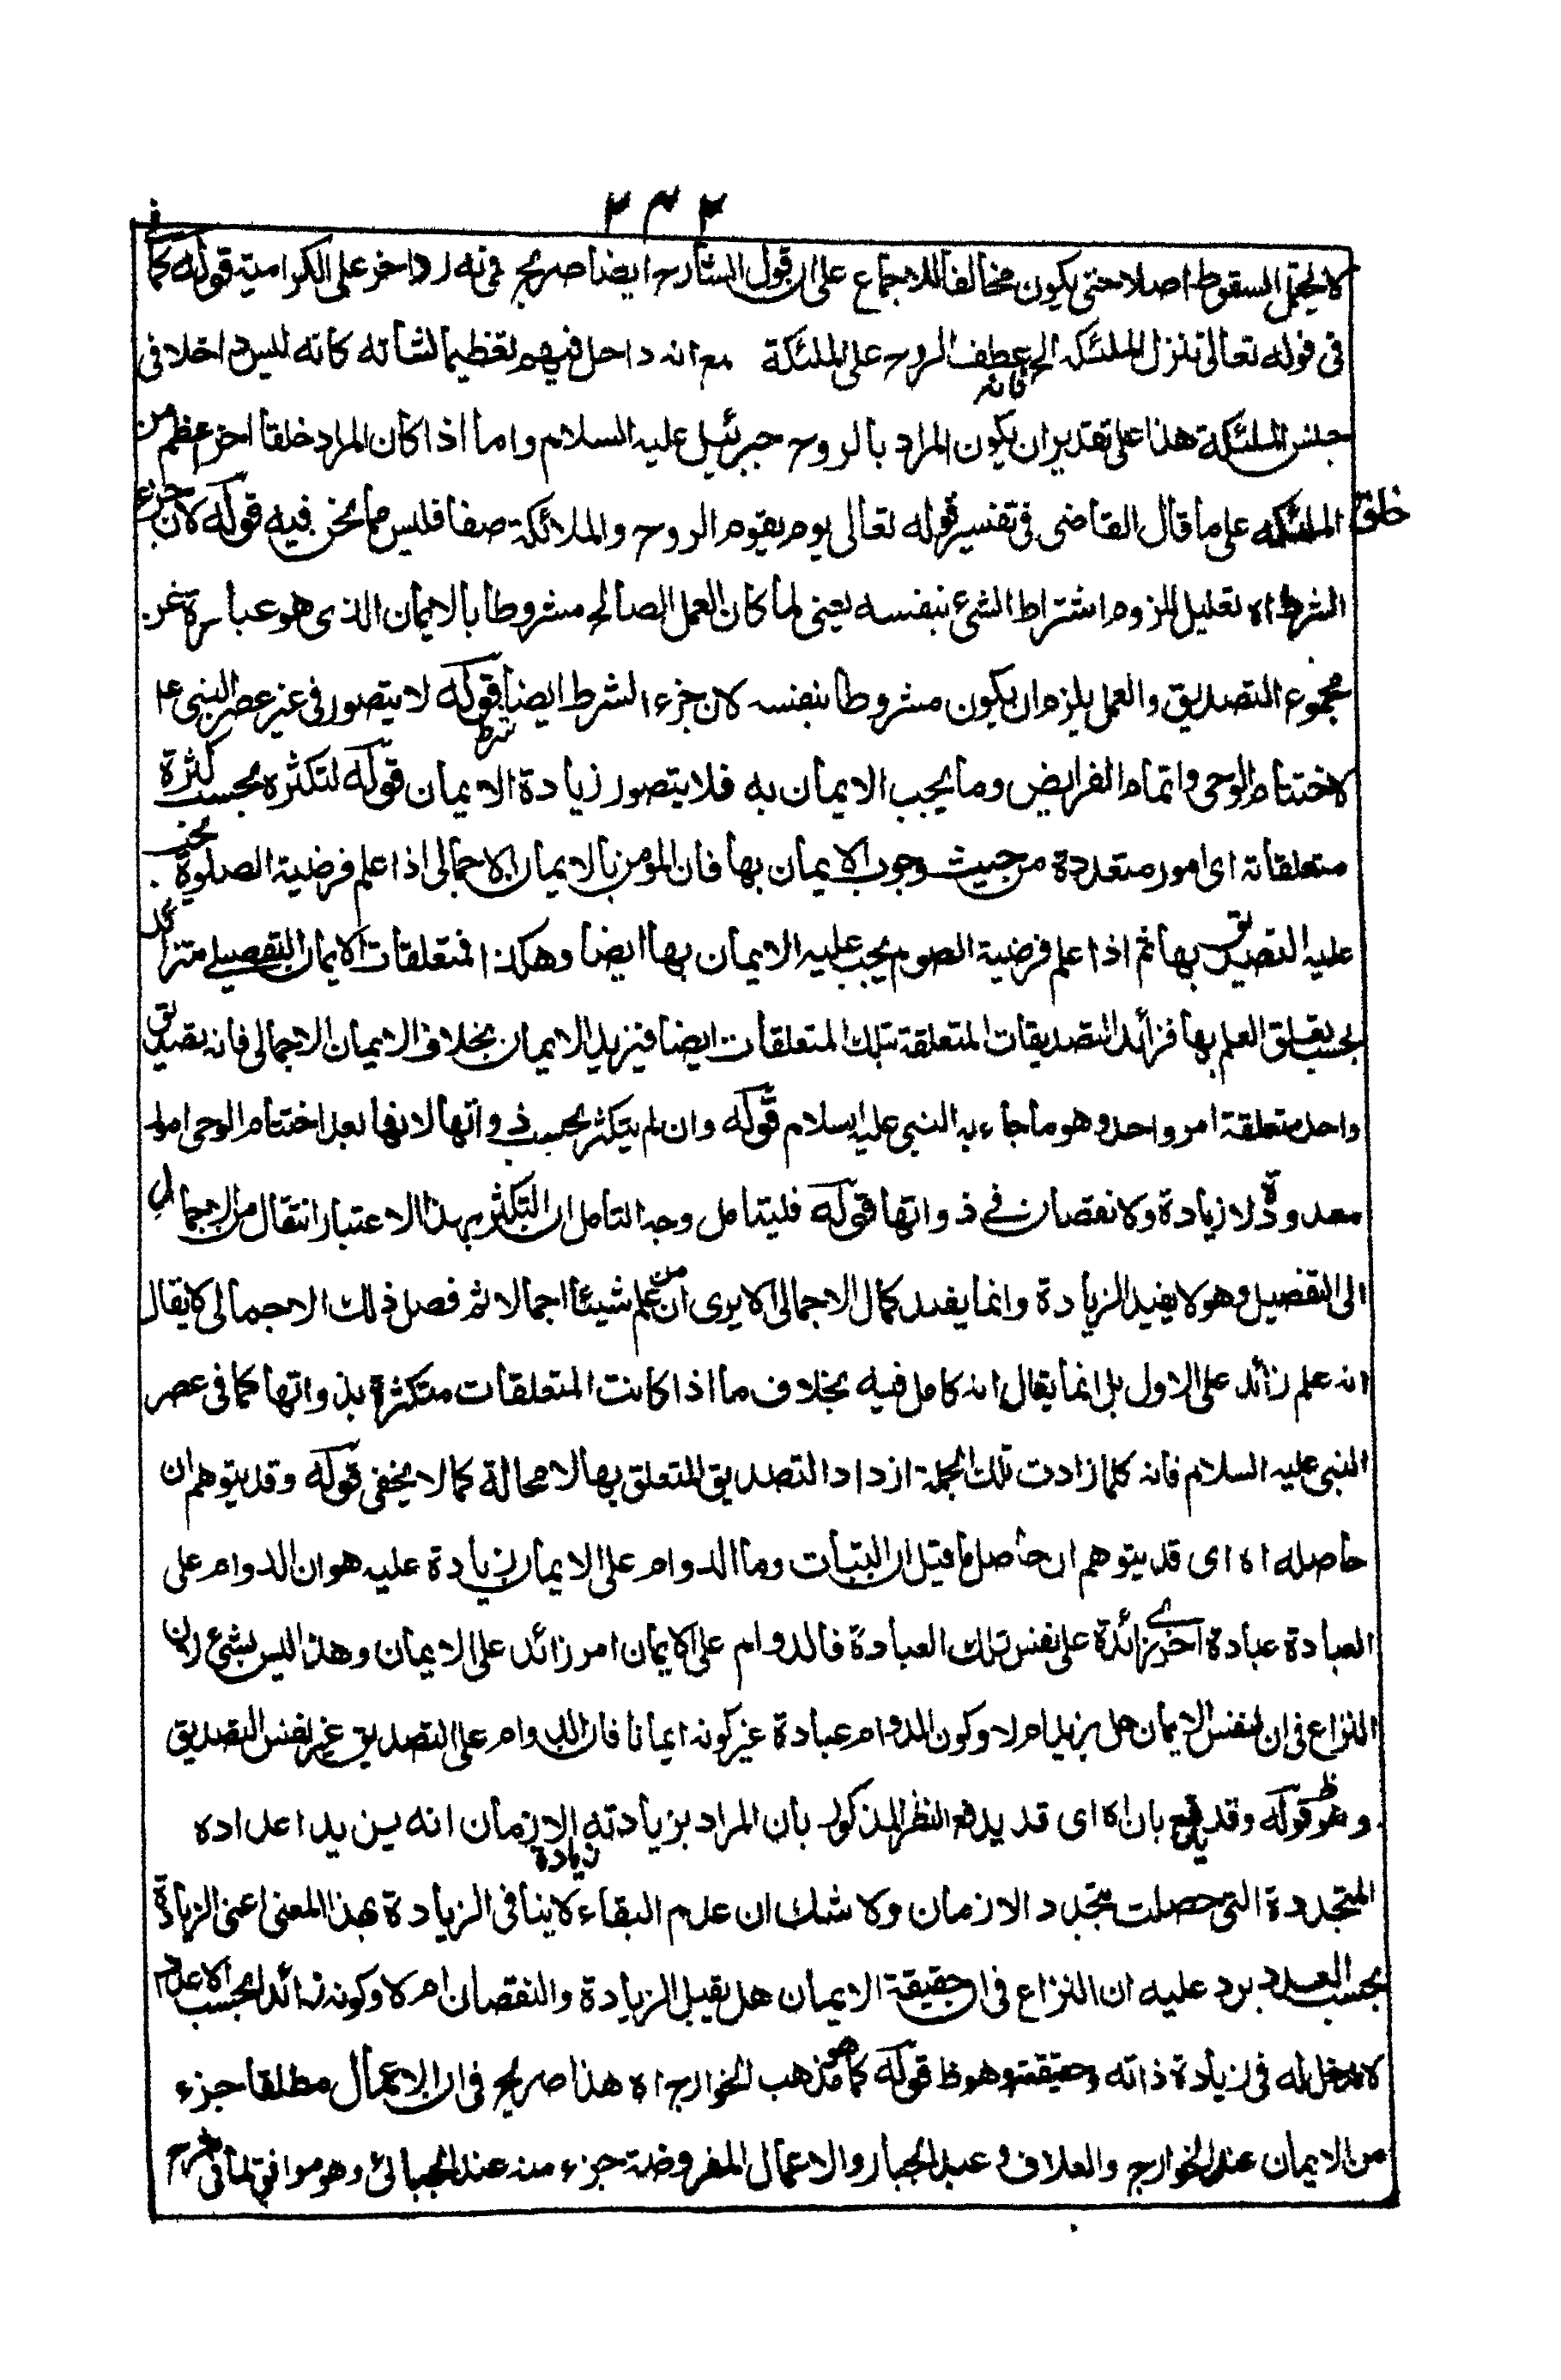 ٢٣٢
لا يحتمل السقوط اصلا حتى يكون مخالفا للاجماع على ان قول الشارح ايضا صريح في انه رد اخر على الكرامية قوله كما في
في قوله تعالى تنزل الملئكة الخ فانه عطف الروح على الملئكة مع انه داخل فيهم تعظيما لشانه كانه ليس داخلا في
جنس الملئكة هذا على تقدير ان يكون المراد بالروح جبرئيل عليه السلام واما اذا كان المراد خلقا اخر اعظم من
خلق الملئكة على ما قال القاضى فى تفسير قوله تعالى يوم يقوم الروح والملائكة صفا فليس مما نحن فيه قوله لان جزء
الشرط اه تعليل للزوم اشتراط الشئ بنفسه يعنى لما كان العمل الصالح مشروطا بالايمان الذى هو عبارة عن
مجموع التصديق والعمل يلزم ان يكون مشروطا بنفسه لان جزء الشرط ايضا شرط قوله لا يتصور فى غير عصر النبى عم
لاختتام الوحى واتمام الفرايض وما يجب الايمان به فلا يتصور زيادة الايمان قوله لتكثره بحسب كثرة
متعلقاته اى امور متعددة من حيث وجوب الايمان بها فان المؤمن بالايمان الاجمالى اذا علم فرضية الصلوة يجب
عليه التصديق بها ثم اذا علم فرضية الصوم يجب عليه الايمان بها ايضا وهكذا فمتعلقات الايمان التفصيلے متزائد
بحسب تعلق العلم بها فزائد التصديقات المتعلقة بتلك المتعلقات ايضا فيزيد الايمان بخلاف الايمان الاجمالى فانه تصديق
واحد متعلقة امر واحد وهو ما جاء به النبى عليه السلام قوله وان لم يتكثر بحسب ذواتها لانها بعد اختتام الوحى امور
معدودة لا زيادة ولا نقصان فے ذواتها قوله فليتامل وجه التامل ان التكثير بهذا الاعتبار انتقال من الاجمال
الى التفصيل وهو لا يفيد الزيادة وانما يفيد كمال الاجمالى الا يرى ان من علم شيئا اجمالا ثم فصل ذلك الاجمالى لا يقال
انه علم زائد على الاول بل انما يقال انه كامل فيه بخلاف ما اذا كانت المتعلقات متكثرة بذواتها كما فى عصر
النبى عليه السلام فانه كلما زادت تلك الجملة ازداد التصديق المتعلق بها لا محالة كما لا يخفى قوله وقد يتوهم ان
حاصله اه اى قد يتوهم ان حاصل ما قيل ان الثبات وما الدوام على الايمان زيادة عليه هو ان الدوام على
العبادة عبادة اخرے زائدة على نفس تلك العبادة فالدوام على الايمان امر زائد على الايمان وهذا ليس بشئ لان
النزاع فى ان لنفس الايمان هل يزيد ام لا وكون الدوام عبادة غير كونه ايمانا فان الدوام على التصديق غير نفس التصديق
وهو ظ قوله وقد يدفع بان اه اى قد يدفع النظر المذكور بان المراد بزيادته زيادة الازمان انه يزيد اعداده
المتجددة التى حصلت بتجدد الازمان ولا شك ان عدم البقاء لا ينافى الزيادة بهذا المعنى اعنى الزيادة
بحسب العدد يرد عليه ان النزاع فى ان حقيقة الايمان هل يقبل الزيادة والنقصان ام لا وكونه زائدا بحسب الاعداد
لا مدخل له فى زيادة ذاته وحقيقته وهو ظ قوله كما هو مذهب الخوارج اه هذا صريح فى ان الاعمال مطلقا جزء
من الايمان عند الخوارج والعلاف وعبد الجبار والاعمال المفروضة جزء منه عند الجبائى وهو موافق لما فى شرح